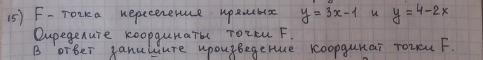 15) F - точка пересечения прямых y = 3x-1 и y = 4-2x
Определите координаты точки F.
В ответ запишите произведение координат точки F.